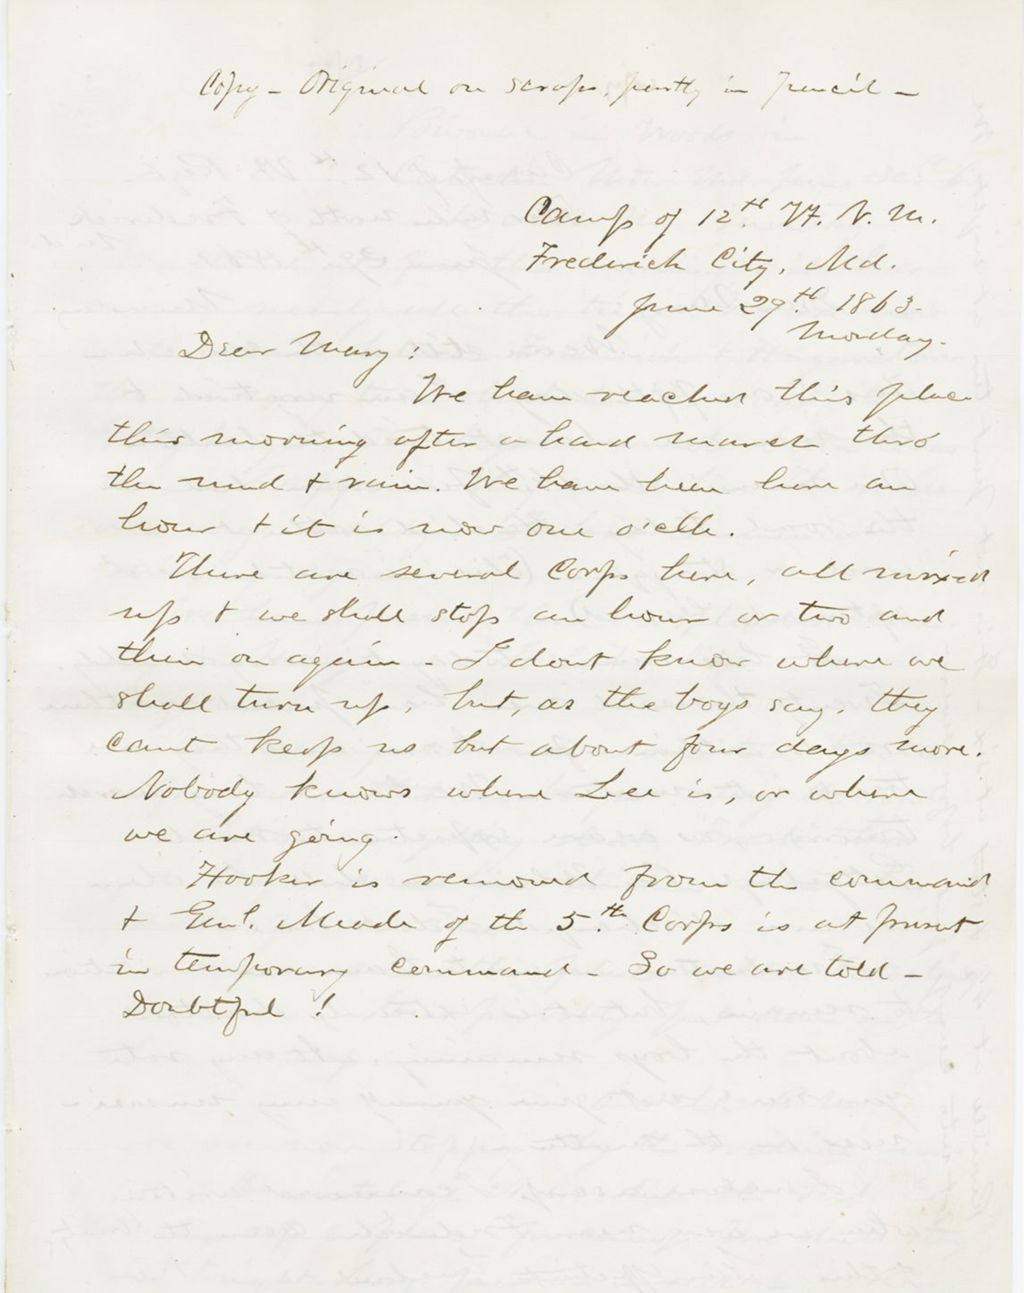 Copy - Original on scraps, partly in pencil -
Camp of 12th Vt. V. M.
Frederick City, Md.
June 29th 1863.
Monday.
Dear Mary:
We have reached this place
this morning after a hard march thro'
the mud & rain. We have been here an
hour & it is now one o'clk.
There are several Corps here, all mixed
up & we shall stop an hour or two and
then on again - I dont know where we
shall turn up, but, as the boys say, they
cant keep us but about four days more.
Nobody knows where Lee is, or where
we are going.
Hooker is removed from the command
& Genl. Meade of the 5th Corps is at present
in temporary command - So we are told -
Doubtful !